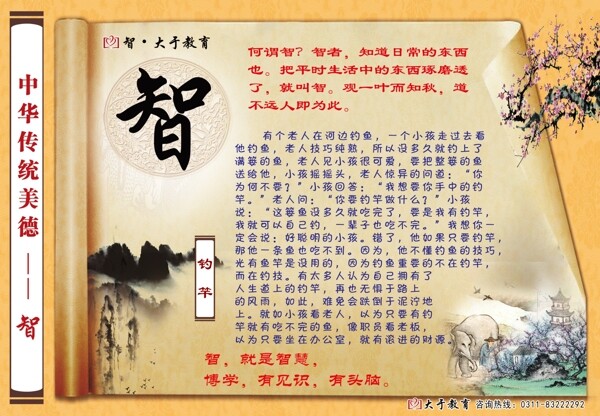 中华传统美德——智
智·大于教育
智
何谓智？智者，知道日常的东西
也。把平时生活中的东西琢磨透
了，就叫智。观一叶而知秋，道
不远人即为此。
有个老人在河边钓鱼，一个小孩走过去看
他钓鱼，老人技巧纯熟，所以没多久就钓上了
满篓的鱼，老人见小孩很可爱，要把整篓的鱼
送给他，小孩摇摇头，老人惊异的问道：“你
为何不要？”小孩回答：“我想要你手中的钓
竿。”老人问：“你要钓竿做什么？”小孩
说：“这篓鱼没多久就吃完了，要是我有钓竿，
我就可以自己钓，一辈子也吃不完。”我想你一
定会说：好聪明的小孩。错了，他如果只要钓竿，
那他一条鱼也吃不到。因为，他不懂钓鱼的技巧，
光有鱼竿是没用的，因为钓鱼重要的不在钓竿，
而在钓技。有太多人认为自己拥有了
人生道上的钓竿，再也无惧于路上
的风雨，如此，难免会跌倒于泥泞地
上。就如小孩看老人，以为只要有钓
竿就有吃不完的鱼，像职员看老板，
以为只要坐在办公室，就有滚进的财源。
钓竿
智，就是智慧，
博学，有见识，有头脑。
大于教育 咨询热线：0311-83222292